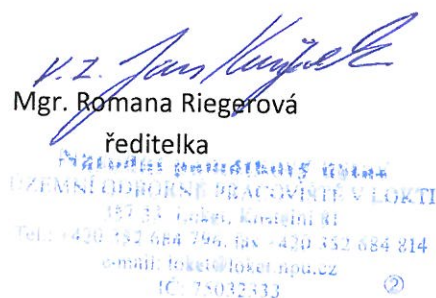 v.z.
Mgr. Romana Riegerová
ředitelka
Národní památkový ústav
ÚZEMNÍ ODBORNÉ PRACOVIŠTĚ V LOKTI
357 33 Loket, Kostelní 81
Tel.: +420 352 684 796, fax +420 352 684 814
e-mail: loket@loket.npu.cz
IČ: 75032333
②